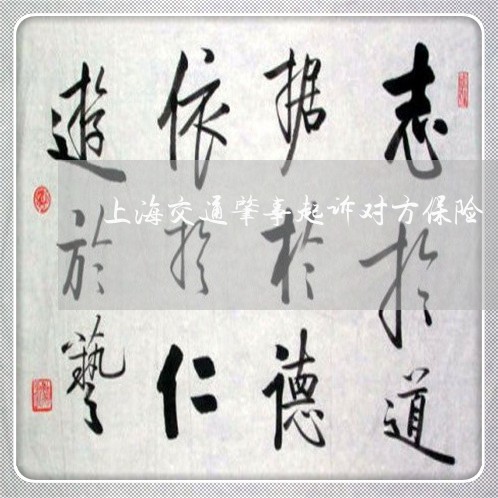 志於道
据於德
依於仁
遊於藝
上海交通肇事起诉对方保险